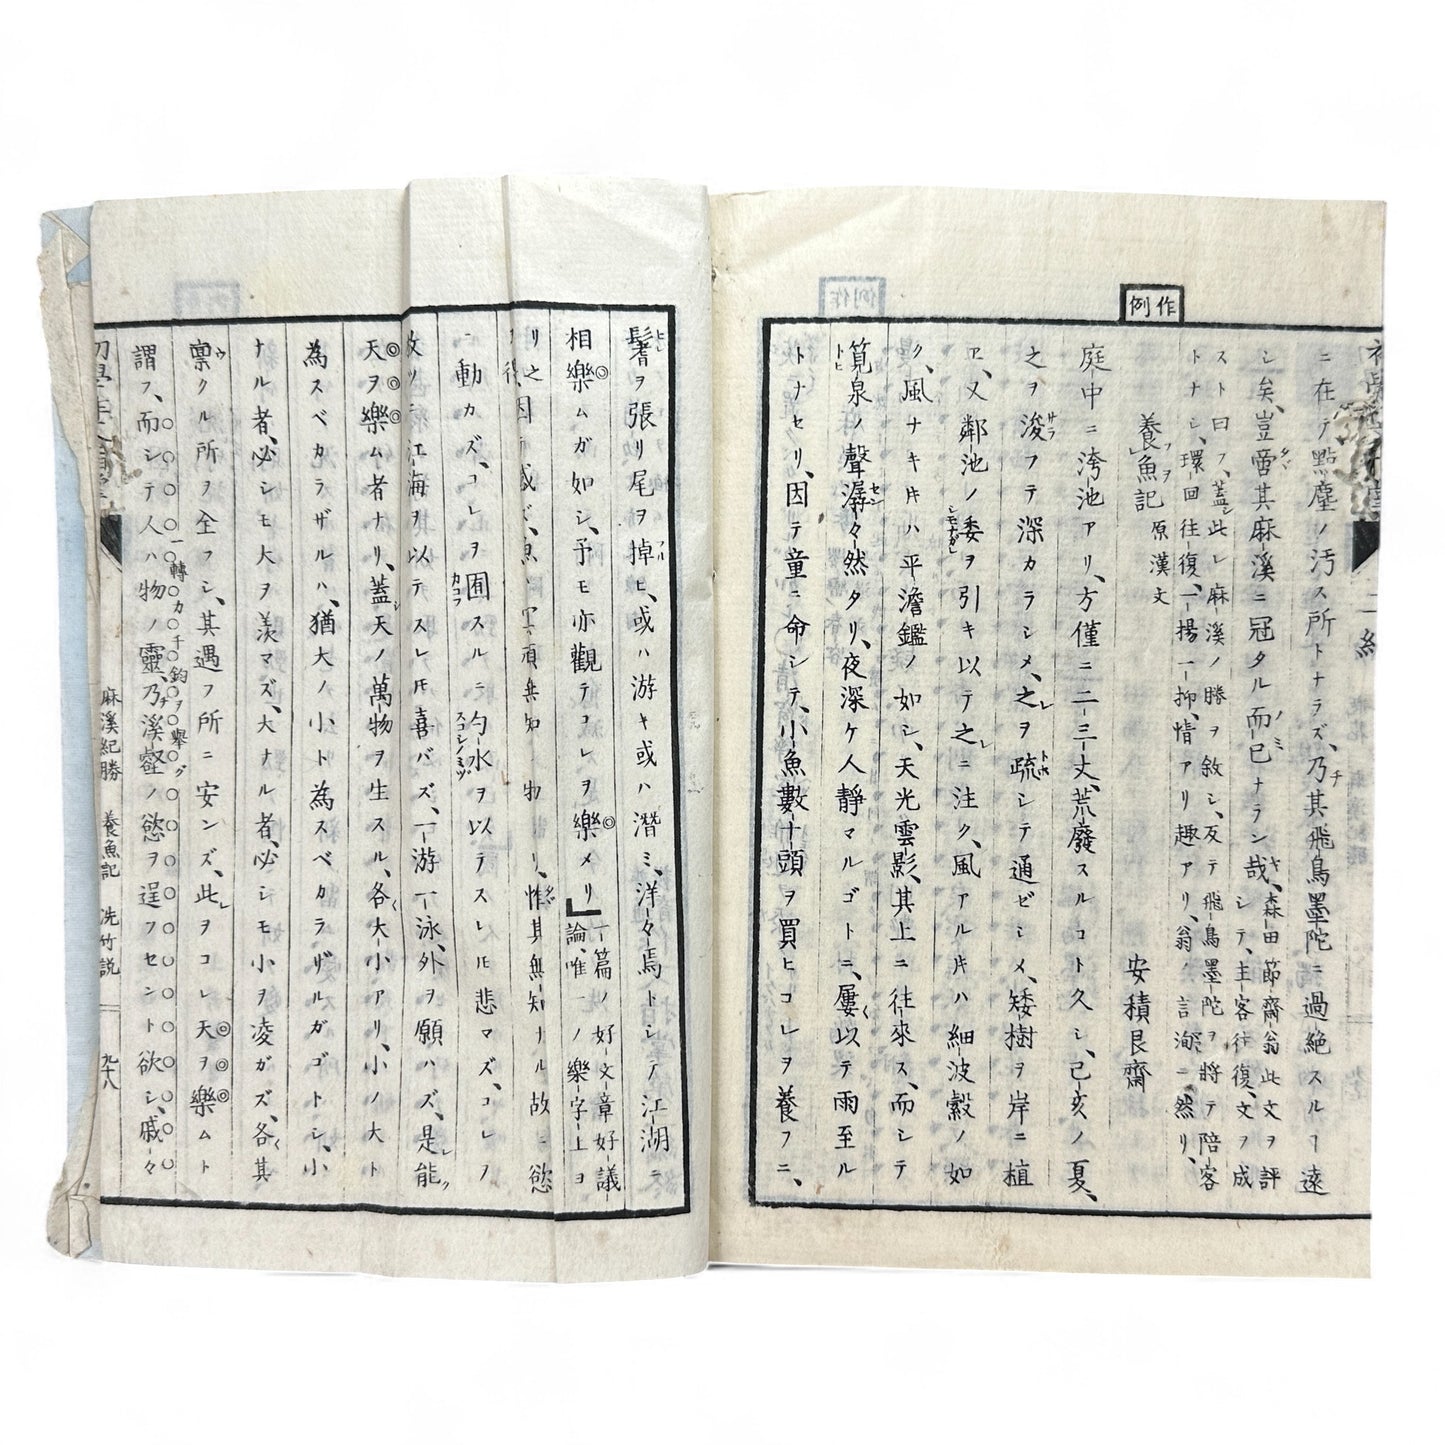 作例
ニ在テ點塵ノ汚ス所トナラズ、乃チ其飛鳥墨陀ニ過絶スルヿ遠
シ矣、豈啻タニ其麻溪ニ冠タル而已ノミナラン哉、森田節齋翁此文ヲ評
スト曰フ、蓋シ此レ麻溪ノ勝ヲ敘シ、反テ飛鳥墨陀ヲ將テ陪客
トナシ、環回往復、一揚一抑、情アリ趣アリ、翁ノ言洵ニ然リ、
シテ、主客往復、文ヲ成
養フヲ魚記 原漢文 安積艮齋
庭中ニ洿池アリ、方僅ニ二三丈、荒廢スルコト久シ、己亥ノ夏、
之ヲ浚サラフテ深カラシメ、之レヲ疏トホシテ通ゼシメ、矮樹ヲ岸ニ植
ヱ、又鄰池ノ委シモナガレヲ引キ以テ之レニ注ク、風アル片ハ細波縠ノ如
ク、風ナキ片ハ平澹鑑ノ如シ、天光雲影、其上ニ往來ス、而シテ
筧トヒ泉ノ聲潺セン々然タリ、夜深ケ人靜マルゴトニ、屢〱以テ雨至ル
トナセリ、因テ童ニ命シテ、小魚數十頭ヲ買ヒコレヲ養フニ、
鬐ヲ張リ尾ヲ掉ヒ、或ハ游キ或ハ潛ミ、洋々焉トシテ江湖ニ
相樂ムガ如シ、予モ亦觀テコレヲ樂メリ」一篇ノ好文章好議
論、唯一ノ樂字上ヨ
リ之
ヲ得、因テ感ズ、魚ハ冥頑無知ノ物ナリ、惟其無知ナル故ニ慾
ニ動カズ、コレヲ囿カコフスルニ勺水スコシノミヅヲ以テスレ𪜈悲マズ、コレヲ
放ツニ江海ヲ以テスレ𪜈喜バズ、一游一泳、外ヲ願ハズ、是レ能ク
天ヲ樂ム者ナリ、蓋シ天ノ萬物ヲ生スル、各〱大小アリ、小ノ大ト
為スベカラザルハ、猶大ノ小ト為スベカラザルガゴトシ、小
ナル者、必シモ大ヲ羨マズ、大ナル者、必シモ小ヲ凌ガズ、各〱其
禀ウクル所ヲ全フシ、其遇フ所ニ安ンズ、此レヲコレ天ヲ樂ムト
一轉カ千鈞ヲ擧グ
謂フ、而シテ人ハ物ノ靈、乃チ溪壑ノ慾ヲ逞フセント欲シ、戚々
麻溪紀勝 養魚記 洗竹説 九十八